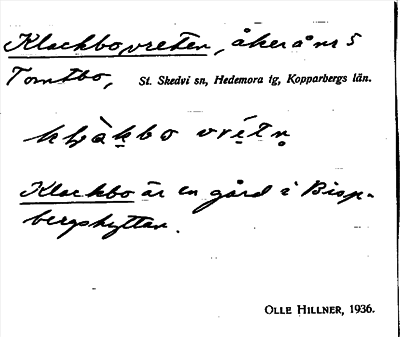 Klackbovreten, åker å nr 5
Tomtbo, St. Skedvi sn, Hedemora tg, Kopparbergs län.
Klackbo är en gård i Bisp-
bergshyttan.
OLLE HILLNER, 1936.